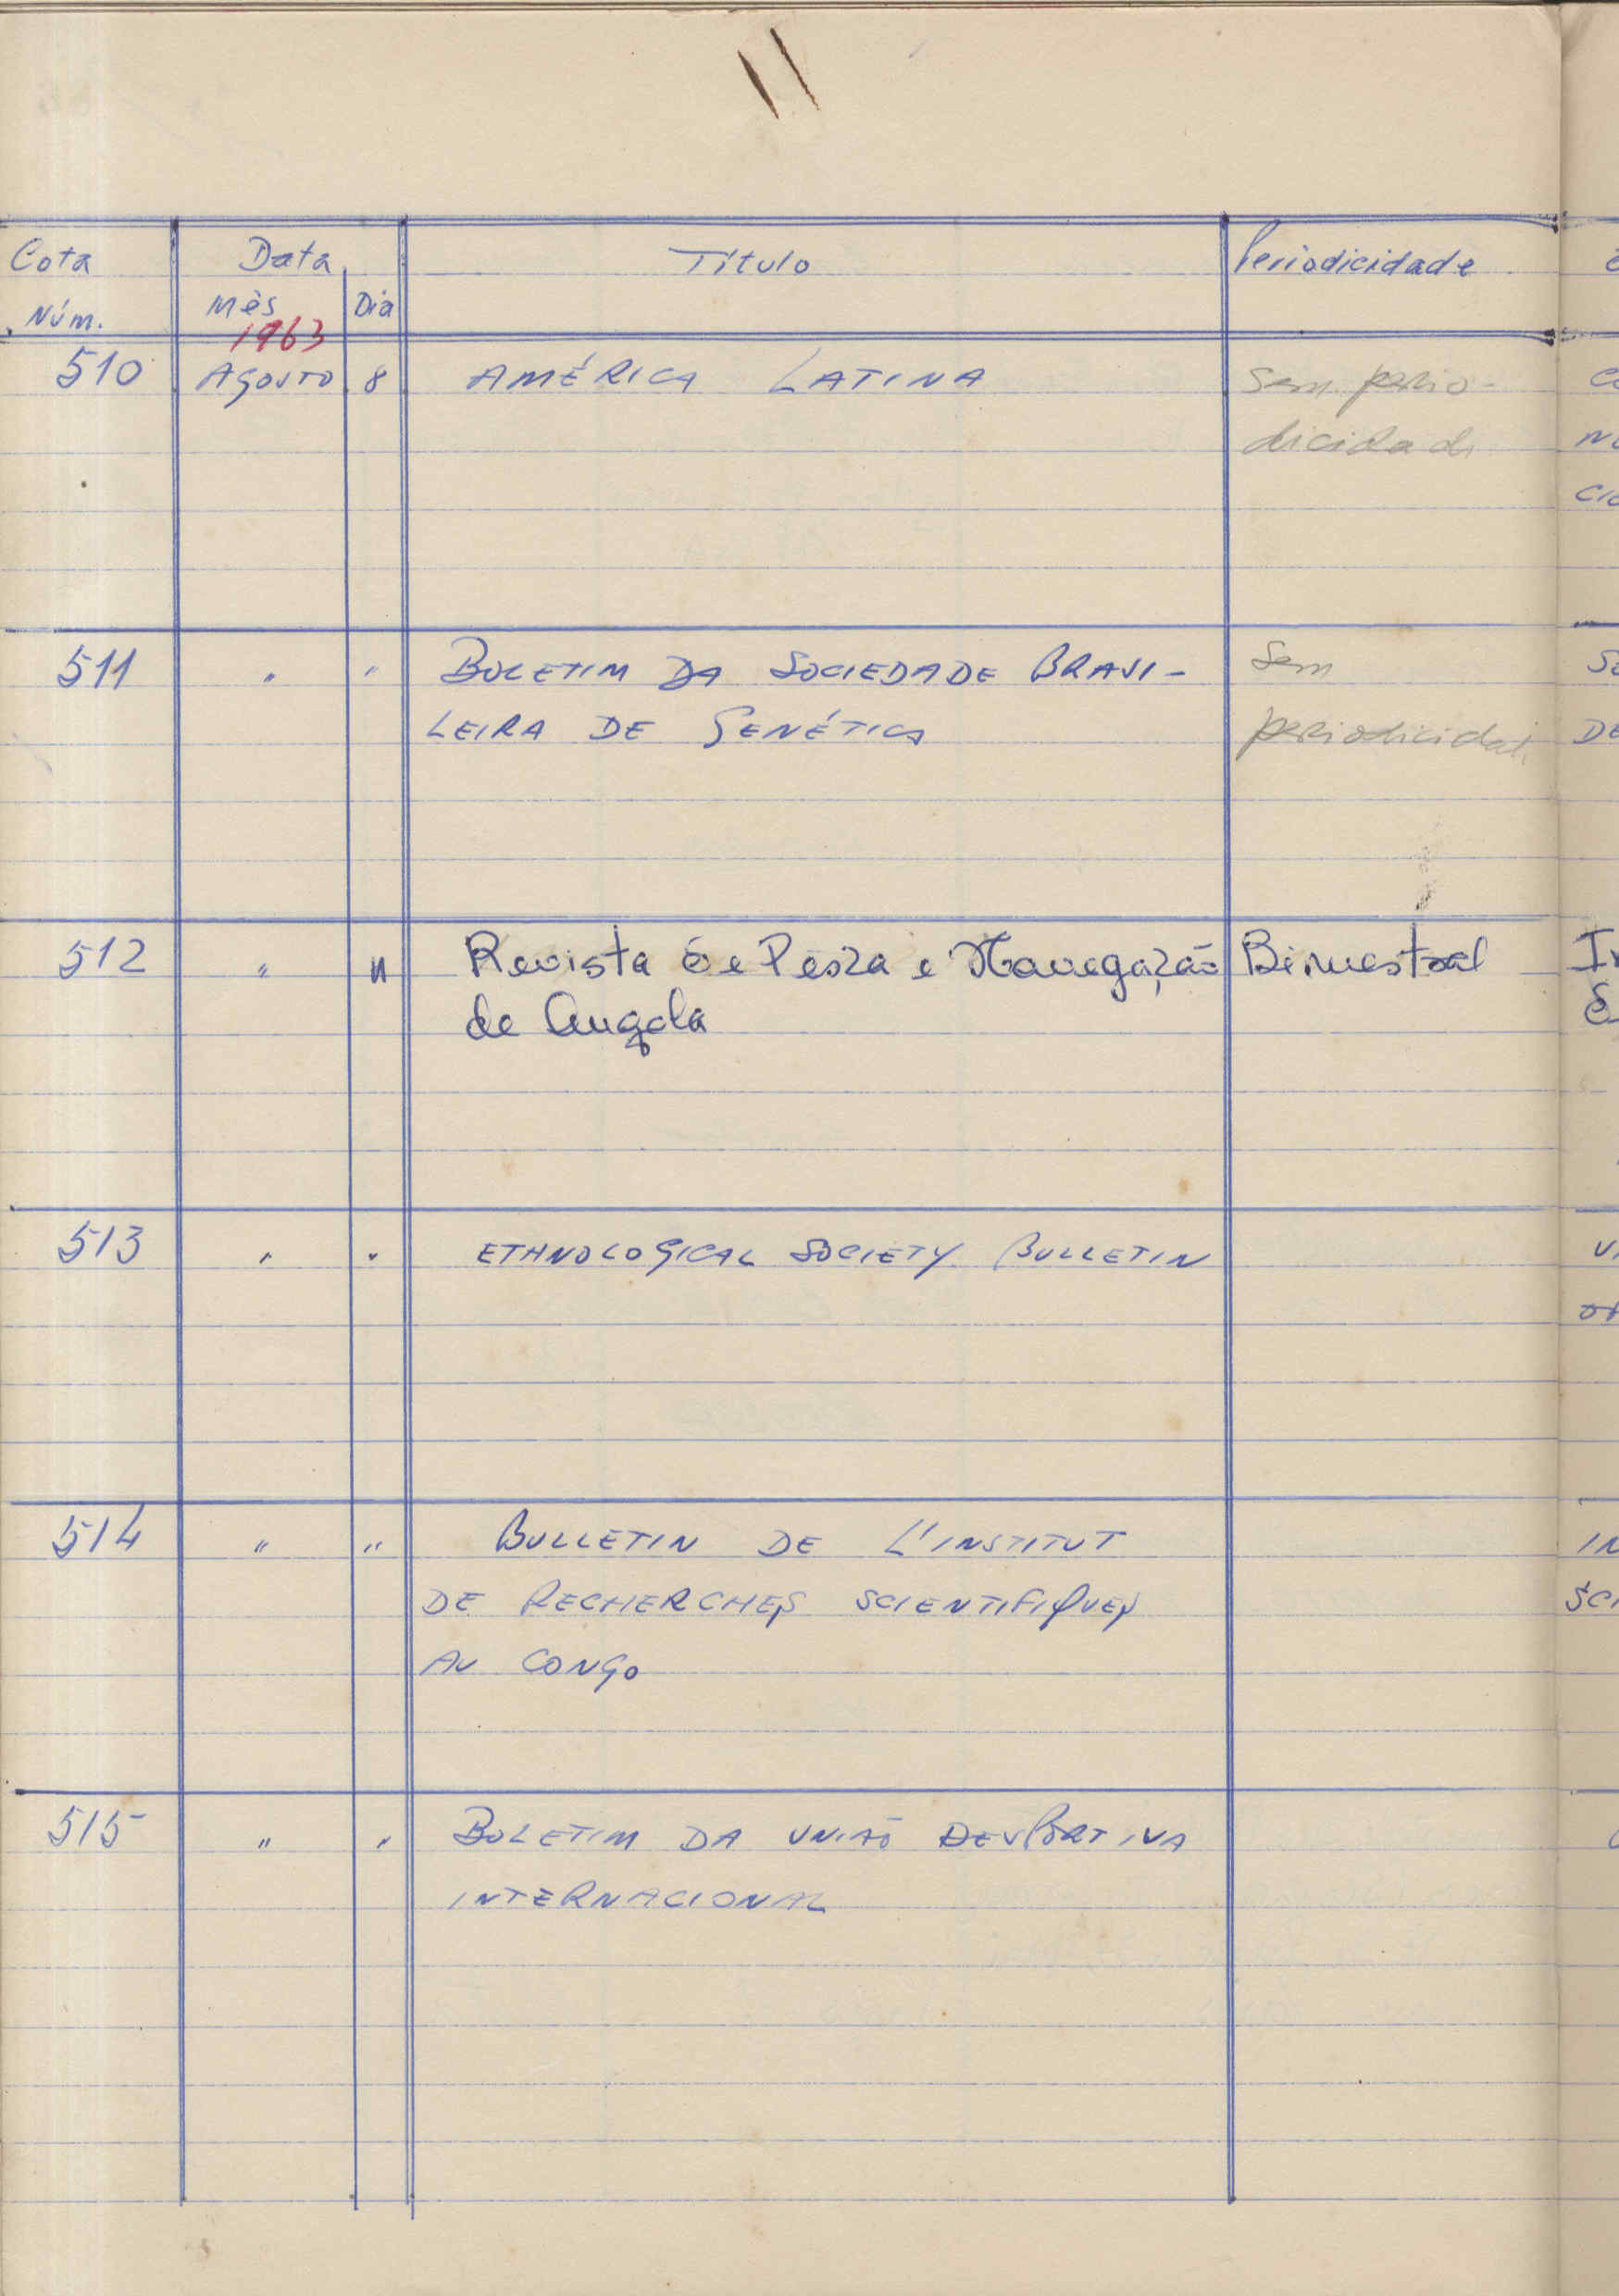 Cota Data Título Periodicidade
Núm. Mês Dia
1963
510 Agosto 8 AMÉRICA LATINA Sem perio-
dicidade
511 " " BOLETIM DA SOCIEDADE BRASI- Sem
LEIRA DE GENÉTICA periodicidade
512 " " Revista de Pesca e Navegação Bimestral
de Angola
513 " " ETHNOLOGICAL SOCIETY BULLETIN
514 " " BULLETIN DE L'INSTITUT
DE RECHERCHES SCIENTIFIQUES
AU CONGO
515 " " BOLETIM DA UNIÃO DESPORTIVA
INTERNACIONAL